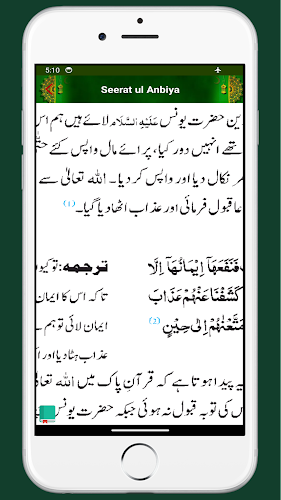 5:10
Seerat ul Anbiya
ین حضرت یونس عَلَیْہِ السَّلَام لائے ہیں ہم اس
تھے انہیں دور کیا، پرائے مال واپس کئے حتّٰی
ر نکال دیا اور واپس کر دیا۔ اللہ تعالیٰ سے
عا قبول فرمائی اور عذاب اٹھا دیا گیا۔(1)
فَنَفَعَهَاۤ اِیْمَانُهَاۤ اِلَّا ترجمہ: تو کیوں
كَشَفْنَا عَنْهُمْ عَذَابَ تاکہ اس کا ایمان
مَتَّعْنٰهُمْ اِلٰى حِیْنٍ(2) ایمان لائی تو ہم
عذاب ہٹا دیا اور
یہ پیدا ہوتا ہے کہ قرآنِ پاک میں اللہ تعالیٰ
کی توبہ قبول نہ ہوئی جبکہ حضرت یونس